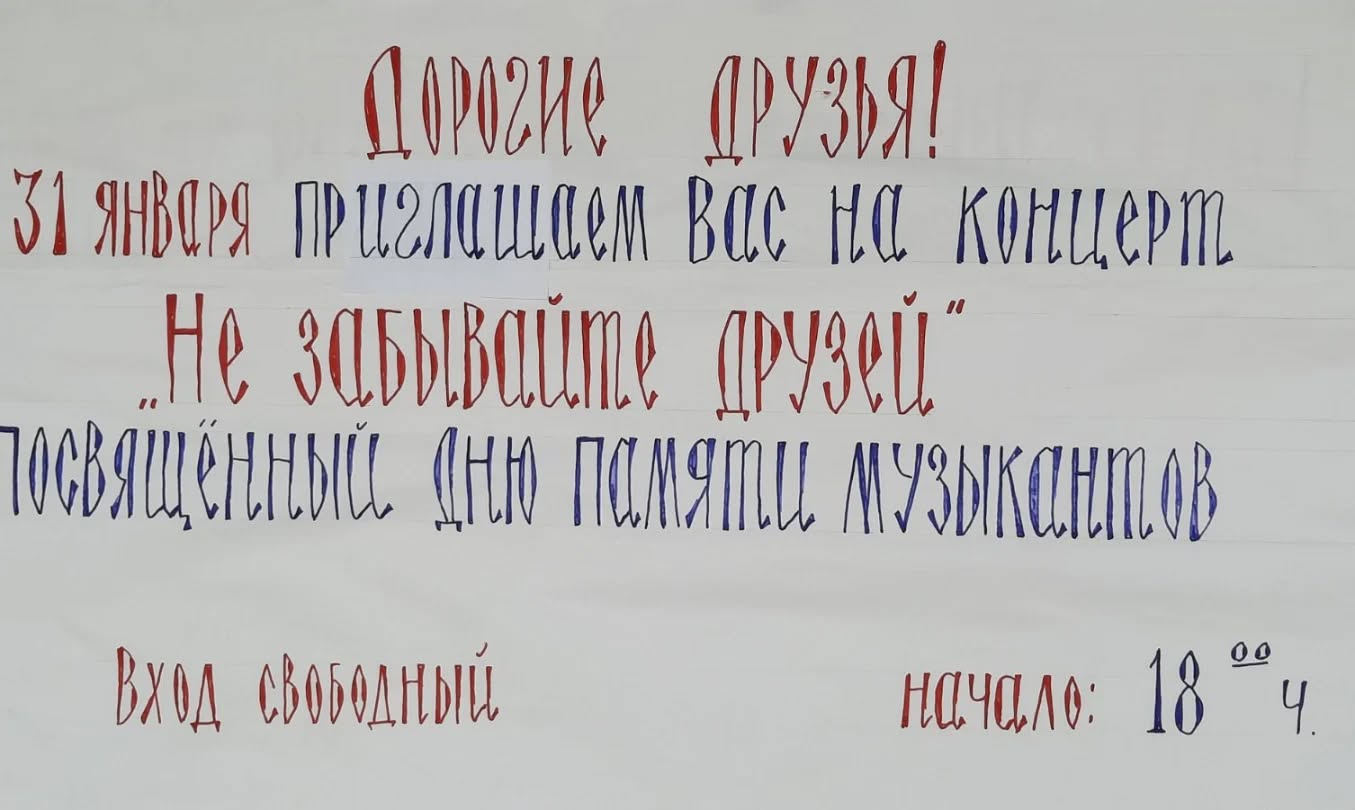 Дорогие друзья!
31 января приглашаем вас на концерт
„Не забывайте друзей“
посвящённый дню памяти музыкантов
Вход свободный начало: 18 00 ч.